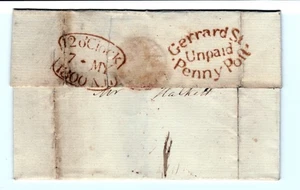 12 oClock
7 · MY
1800 N.n
Gerrard St
Unpaid
Penny Post
Mr Hallett